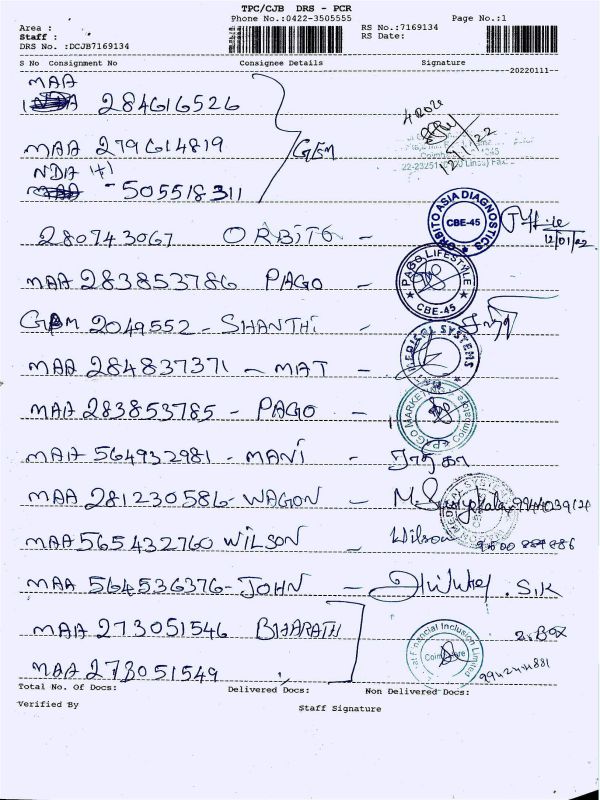 TPC/CJB DRS - PCR
Phone No.:0422-3505555 Page No.:1
Area : RS No.:7169134
Staff : RS Date:
DRS No. :DCJB7169134
S No Consignment No Consignee Details Signature
20220111
MAA
284616526
MAA 279614819 GEM
12/1/22
NDIA (+)
505518311
280743067 ORBITO -
ORBITO ASIA DIAGNOSTICS
CBE-45
12/01/22
MAA 283853786 PAGO -
PAGO LIFESTYLE
CBE-45
2049552 - SHANTHI -
MAA 284837371 - MAT -
MEDICAL SYSTEMS
MAA 283853785 - PAGO -
PAGO MARKETING
MAA 564932981 - MANI - ராதிகா
MAA 281230586 - WAGON -
MAA 565432760 WILSON - Wilson
MAA 564536376 - JOHN - . S.K
MAA 273051546 BHARATH
Financial Inclusion Limited
Coimbatore
MAA 273051549
Total No. Of Docs: Delivered Docs: Non Delivered Docs:
Verified By Staff Signature